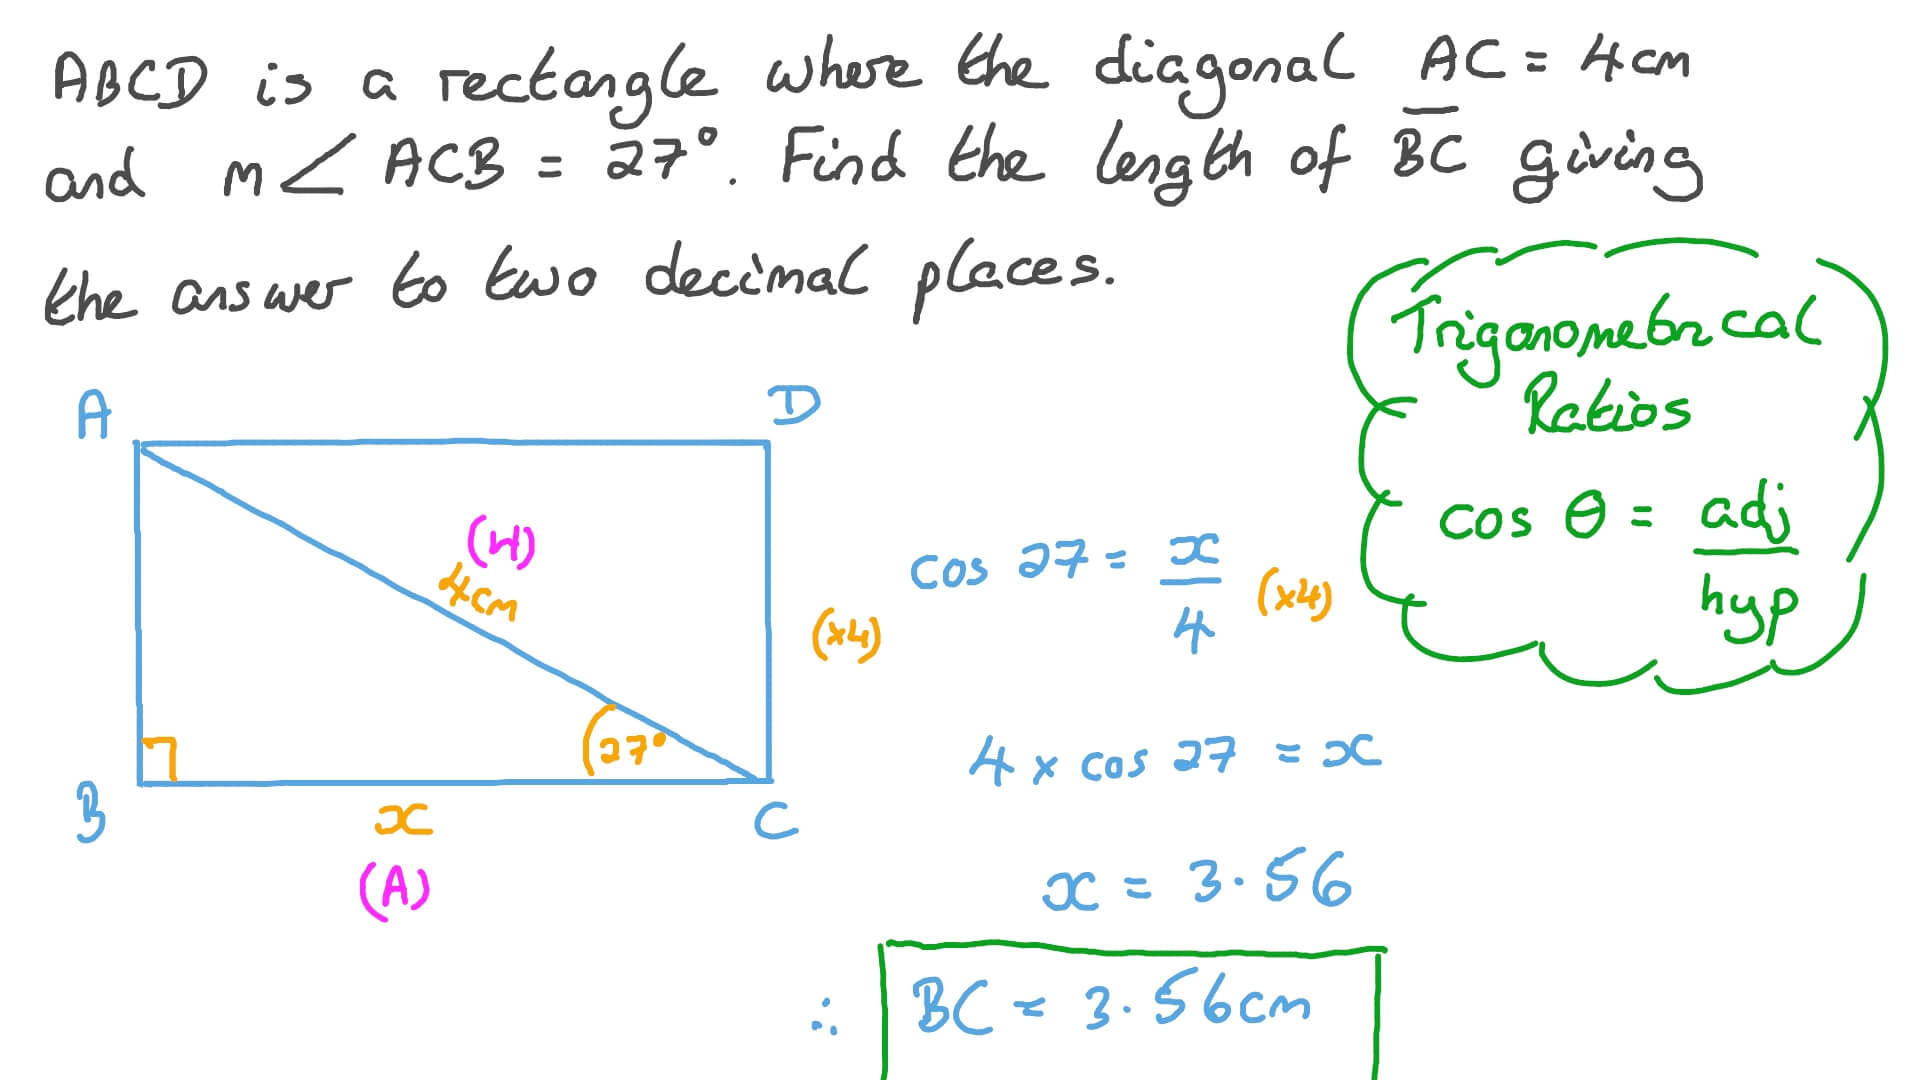 ABCD is a rectangle where the diagonal AC = 4cm
and m∠ ACB = 27°. Find the length of BC giving
the answer to two decimal places.
Trigonometrical
Ratios
cos θ = adj/hyp
A
D
(H)
4cm
27°
B
x
C
(A)
(x4) cos 27 = x/4 (x4)
4 x cos 27 = x
x = 3.56
∴ BC = 3.56cm